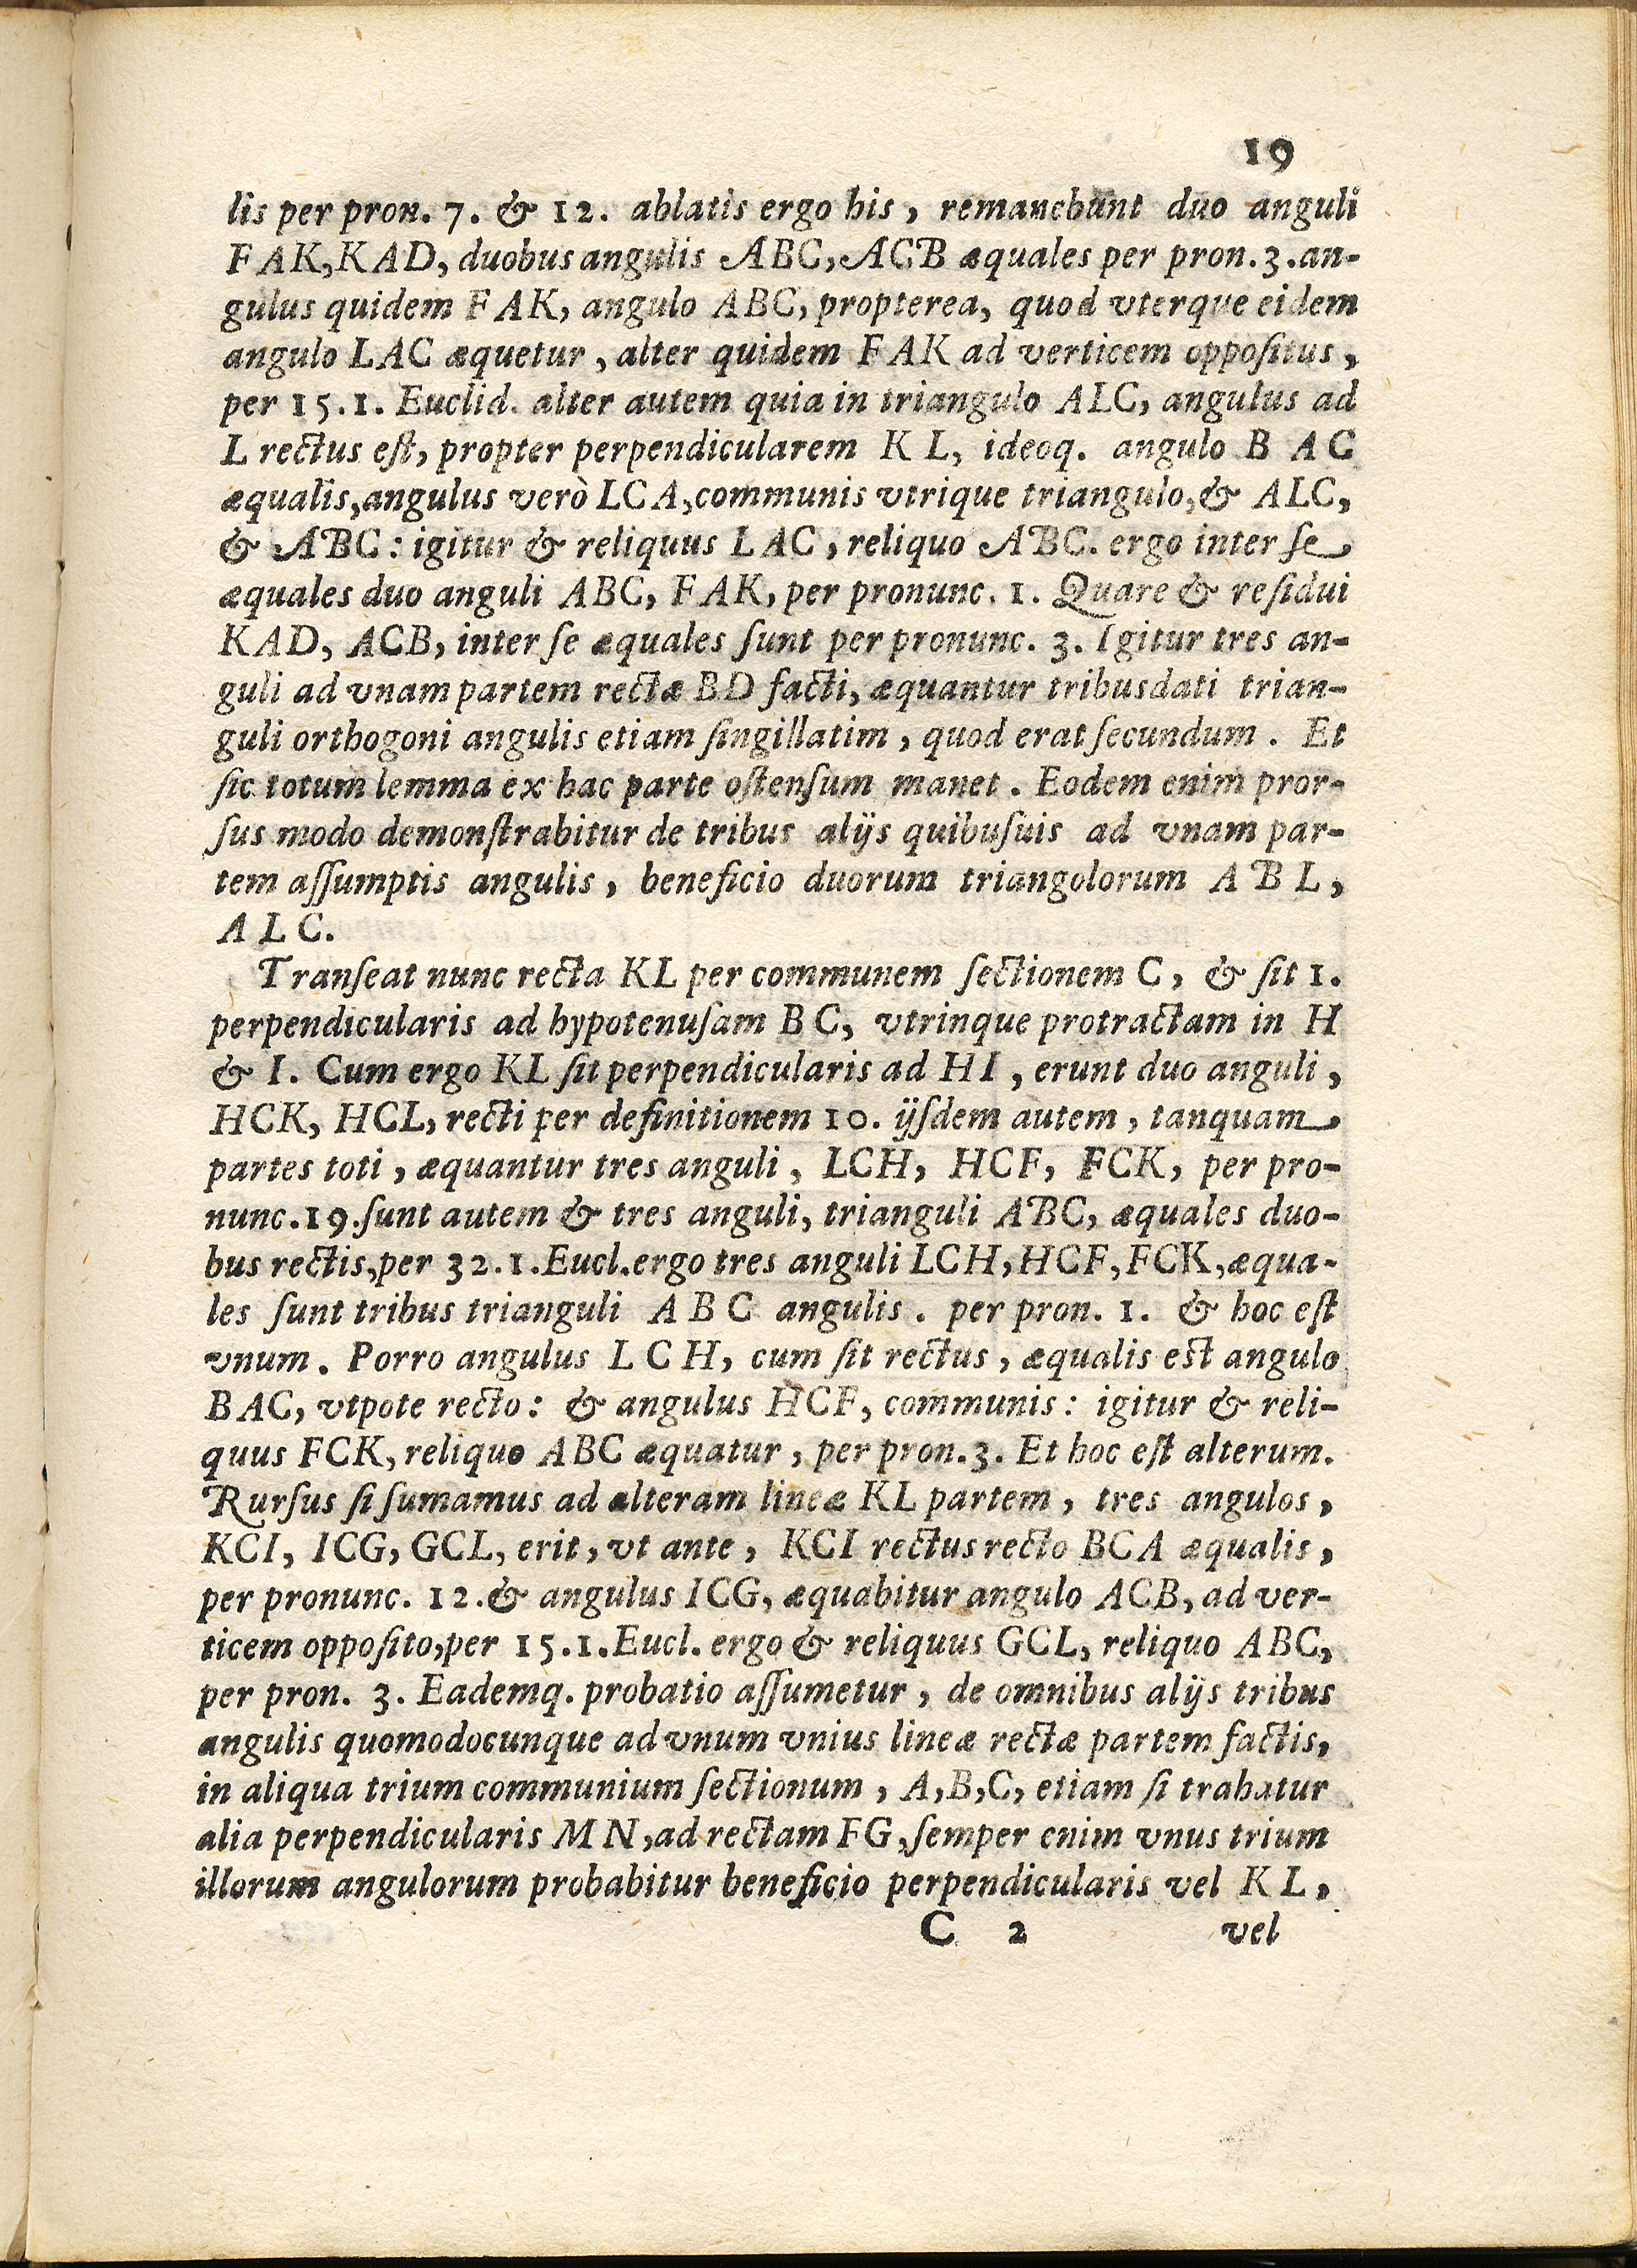 19
lis per pron. 7. & 12. ablatis ergo his, remanebunt duo anguli
FAK, KAD, duobus angulis ABC, ACB æquales per pron. 3. an-
gulus quidem FAK, angulo ABC, propterea, quod vterque eidem
angulo LAC æquetur, alter quidem FAK ad verticem oppoſitus,
per 15.1. Euclid. alter autem quia in triangulo ALC, angulus ad
L rectus eſt, propter perpendicularem KL, ideoq. angulo B AC
æqualis, angulus verò LCA, communis vtrique triangulo, & ALC,
& ABC: igitur & reliquus LAC, reliquo ABC. ergo inter ſe
æquales duo anguli ABC, FAK, per pronunc. 1. Quare & reſidui
KAD, ACB, inter ſe æquales ſunt per pronunc. 3. Igitur tres an-
guli ad vnam partem rectæ BD facti, æquantur tribusdati trian-
guli orthogoni angulis etiam ſingillatim, quod erat ſecundum. Et
ſic totum lemma ex hac parte oſtenſum manet. Eodem enim pror-
ſus modo demonſtrabitur de tribus alijs quibuſuis ad vnam par-
tem aſſumptis angulis, beneficio duorum triangolorum ABL,
ALC.
Tranſeat nunc recta KL per communem ſectionem C, & ſit 1.
perpendicularis ad hypotenuſam BC, vtrinque protractam in H
& I. Cum ergo KL ſit perpendicularis ad HI, erunt duo anguli,
HCK, HCL, recti per definitionem 10. ijſdem autem, tanquam
partes toti, æquantur tres anguli, LCH, HCF, FCK, per pro-
nunc. 19. ſunt autem & tres anguli, trianguli ABC, æquales duo-
bus rectis, per 32.1. Eucl. ergo tres anguli LCH, HCF, FCK, æqua-
les ſunt tribus trianguli ABC angulis. per pron. 1. & hoc eſt
vnum. Porro angulus LCH, cum ſit rectus, æqualis est angulo
BAC, vtpote recto: & angulus HCF, communis: igitur & reli-
quus FCK, reliquo ABC æquatur, per pron. 3. Et hoc eſt alterum.
Rurſus ſi ſumamus ad alteram lineæ KL partem, tres angulos,
KCI, ICG, GCL, erit, vt ante, KCI rectus recto BCA æqualis,
per pronunc. 12. & angulus ICG, æquabitur angulo ACB, ad ver-
ticem oppoſito, per 15.1. Eucl. ergo & reliquus GCL, reliquo ABC,
per pron. 3. Eademq. probatio aſſumetur, de omnibus alijs tribus
angulis quomodocunque ad vnum vnius lineæ rectæ partem factis,
in aliqua trium communium ſectionum, A, B, C, etiam ſi trahatur
alia perpendicularis MN, ad rectam FG, ſemper enim vnus trium
illorum angulorum probabitur beneficio perpendicularis vel KL,
C 2 vel